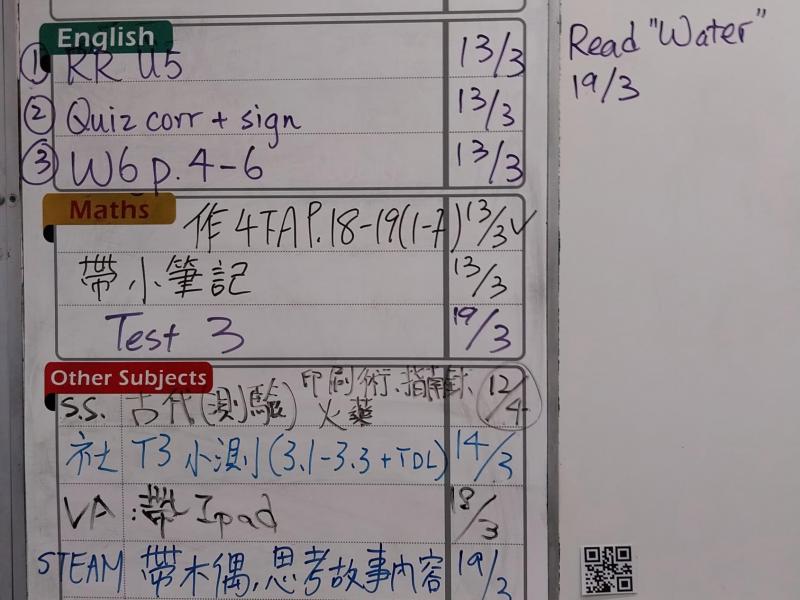 English
① RR U5 13/3
② Quiz corr + sign 13/3
③ W6 p. 4-6 13/3
Maths
作 4TA P.18-19(1-7) 13/3 ✓
帶小筆記 13/3
Test 3 19/3
Other Subjects
S.S. 古代(測驗) 印刷術.指南針.火藥 12/4
社 T3 小測(3.1-3.3+TDL) 14/3
VA :帶 Ipad 18/3
STEAM 帶木偶,思考故事內容 19/3
Read "Water"
19/3